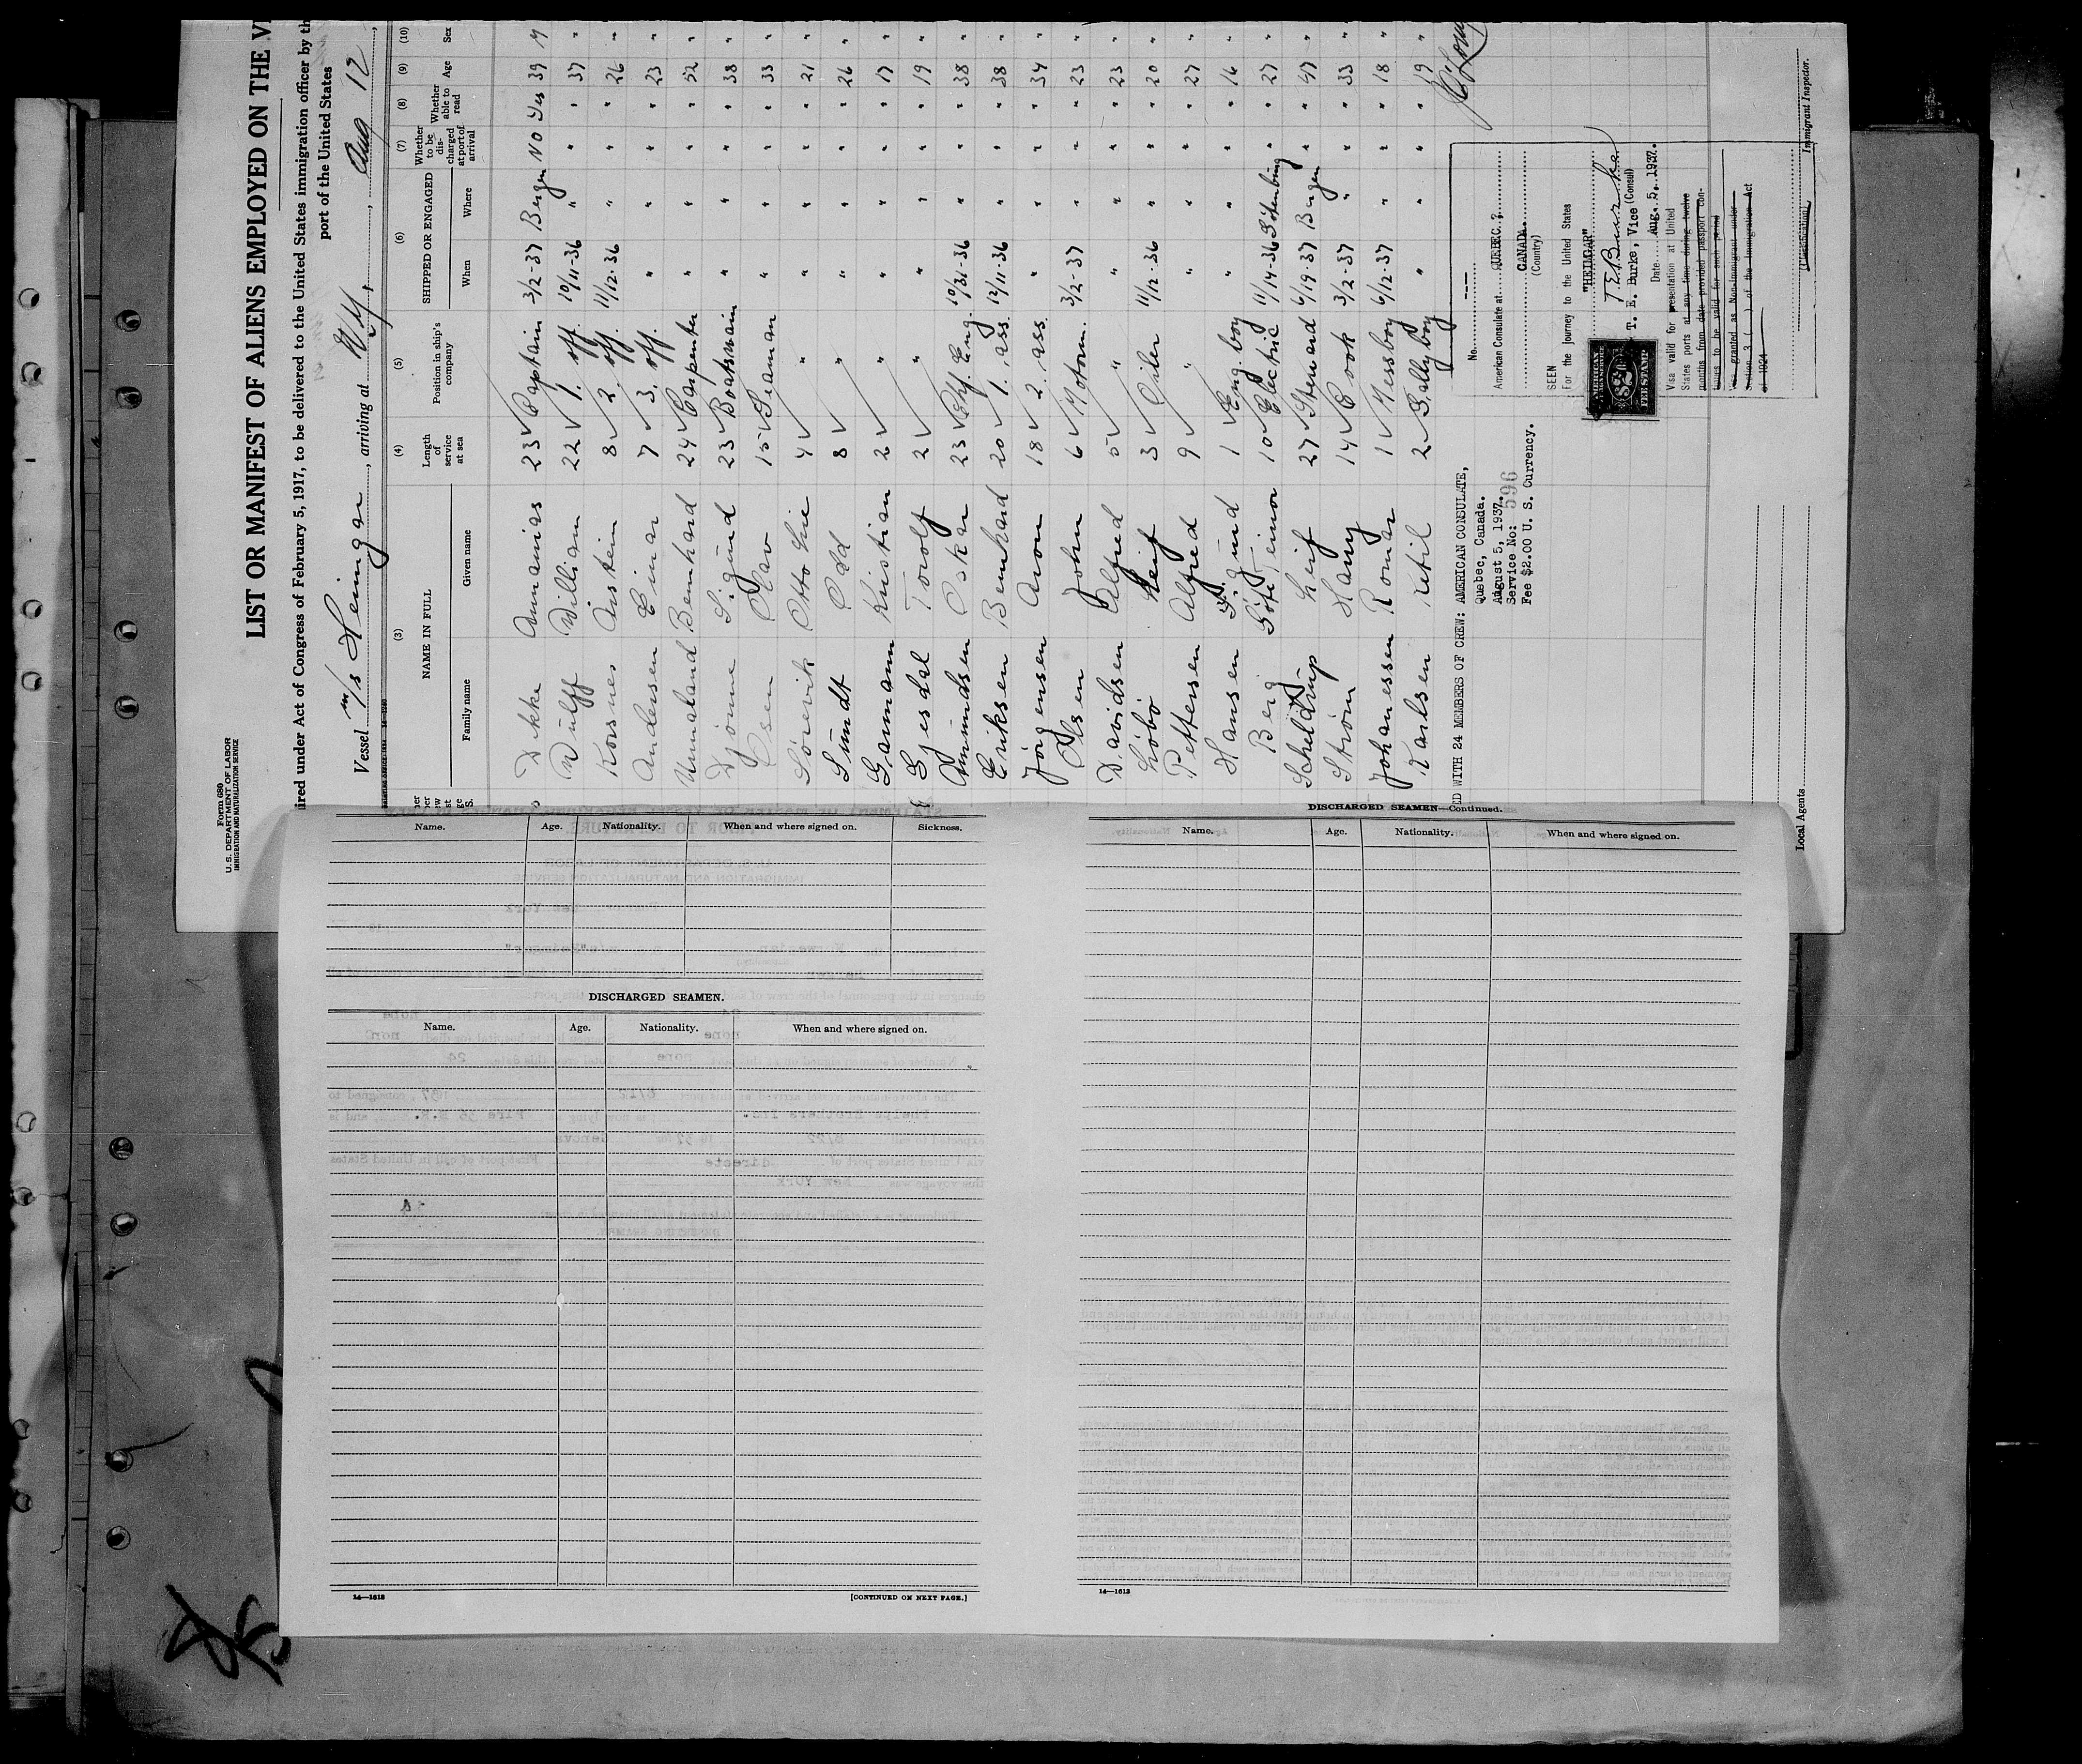 Form 680
U.S. DEPARTMENT OF LABOR
IMMIGRATION AND NATURALIZATION SERVICE
LIST OR MANIFEST OF ALIENS EMPLOYED ON THE
ired under Act of Congress of February 5, 1917, to be delivered to the United States immigration officer by th
port of the United States
Vessel m/s Heimgar, arriving at N.Y., Aug 12,
(3) (4) (5) (6) (7) (8) (9) (10)
NAME IN FULL Length of service at sea Position in ship's company SHIPPED OR ENGAGED Whether to be discharged at port of arrival Whether able to read Age Sex
Family name Given name When Where
Dekke Annanias 23 Captain 3/2-37 Bergen No Yes 39 M
Wulff William 22 1. off. 10/11-36 " " " 37 "
Korsnes Austein 8 2. off. 11/12-36 " " " 26 "
Andersen Einar 7 3. off. " " " " 23 "
Unneland Bernhard 24 Carpenter " " " " 52 "
Djönne Sigurd 23 Boatswain " " " " 38 "
Olsen Olav 15 Seaman " " " " 33 "
Sörevik Otto 4 " " " " " 21 "
Sundt Odd 8 " " " " " 26 "
Gammann Kristian 2 " " " " " 17 "
Gjesdal Torolf 2 " " " " " 19 "
Amundsen Oskar 23 Chf. Eng. 10/31-36 " " " 38 "
Eriksen Bernhard 20 1. ass. 12/11-36 " " " 38 "
Jörgensen Aron 18 2. ass. " " " " 34 "
Olsen John 6 Motorm. 3/2-37 " " " 23 "
Davidsen Alfred 5 " " " " " 23 "
Löbö Leif 3 Oiler 11/12-36 " " " 20 "
Pettersen Alfred 9 " " " " " 27 "
Hansen Sigurd 1 Eng. boy " " " " 16 "
Berg Göte 10 Electric 11/14-36 Götenburg " " 27 "
Scheldrup Leif 27 Steward 6/19-37 Bergen " " 47 "
Ström Harry 14 Cook 3/2-37 " " " 33 "
Johanessen Ronar 11 Messboy 6/12-37 " " " 18 "
Karlsen Ketil 2 Gallyboy " " " " 19 "
ED WITH 24 MEMBERS OF CREW: AMERICAN CONSULATE,
Quebec, Canada.
August 5, 1937.
Service No: 596
Fee $2.00 U. S. Currency.
No. ---
American Consulate at QUEBEC.
CANADA.
(Country)
SEEN
For the journey to the United States
"HEIMGAR"
T. E. Burke
T. E. Burke, Vice (Consul)
Date Aug. 5. 1937.
Visa valid for presentation at United
States ports at any time during twelve
months from date provided passport con-
tinues to be valid for such period
granted as Non-immigrant under
Section 3 ( ) of the Immigration Act
of 1924
(Classification)
AMERICAN
$2
FEE STAMP
Local Agents
Immigrant Inspector.
Name. Age. Nationality. When and where signed on. Sickness.
DISCHARGED SEAMEN.
Name. Age. Nationality. When and where signed on.
14—1613
[CONTINUED ON NEXT PAGE.]
DISCHARGED SEAMEN—Continued.
Name. Age. Nationality. When and where signed on.
14—1613